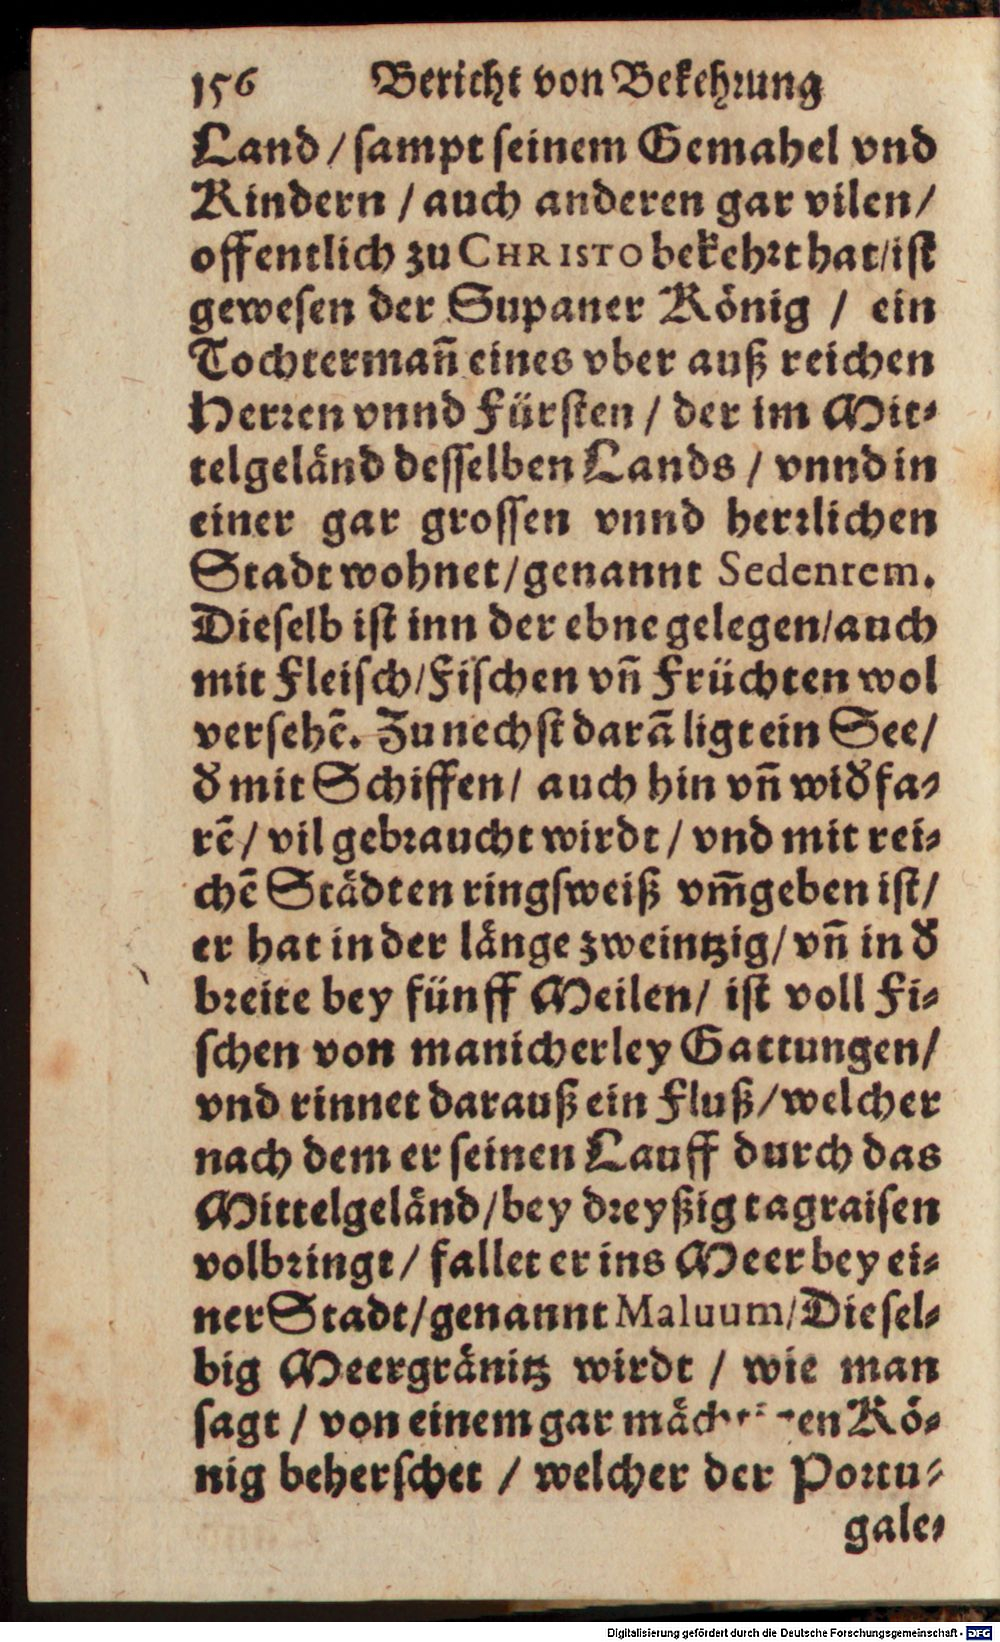 156 Bericht von Bekehrung
Land / sampt seinem Gemahel vnd
Kindern / auch anderen gar vilen /
offentlich zu CHRISTO bekehrt hat / ist
gewesen der Supaner König / ein
Tochtermañ eines vber auß reichen
Herren vnnd Fürsten / der im Mit⸗
telgeländ desselben Lands / vnnd in
einer gar grossen vnnd herrlichen
Stadt wohnet / genannt Sedentem.
Dieselb ist inn der ebne gelegen / auch
mit Fleisch / Fischen vñ Früchten wol
versehẽ. Zu nechst darã ligt ein See /
đ mit Schiffen / auch hin vñ widđ fa⸗
rẽ / vil gebraucht wirdt / vnd mit rei⸗
chẽ Städten ringsweiß vm̃geben ist /
er hat in der länge zweintzig / vñ in đ
breite bey fünff Meilen / ist voll Fi⸗
schen von manicherley Gattungen /
vnd rinnet darauß ein Fluß / welcher
nach dem er seinen Lauff durch das
Mittelgeländ / bey dreyßig tagraisen
volbringt / fallet er ins Meer bey ei⸗
ner Stadt / genannt Maluum / Diesel⸗
big Meergränitz wirdt / wie man
sagt / von einem gar mächtigen Kö⸗
nig beherschet / welcher der Portu⸗
gale⸗
Digitalisierung gefördert durch die Deutsche Forschungsgemeinschaft - DFG